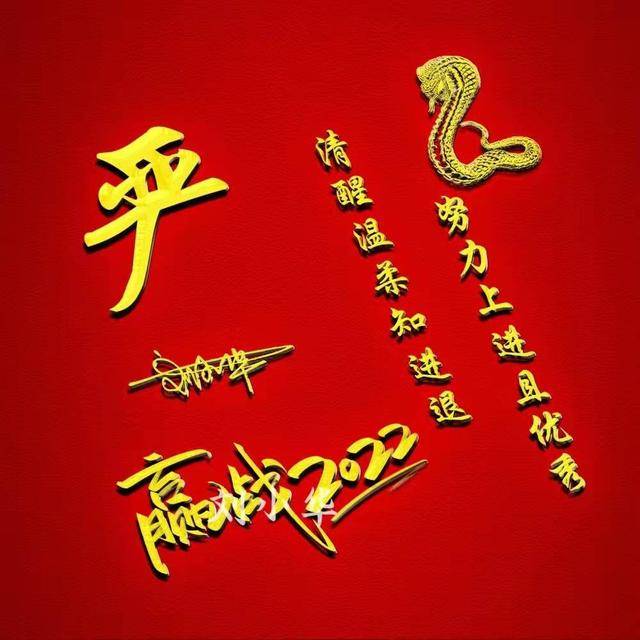 严
清醒温柔知进退
努力上进且优秀
赢战2022
刘小华